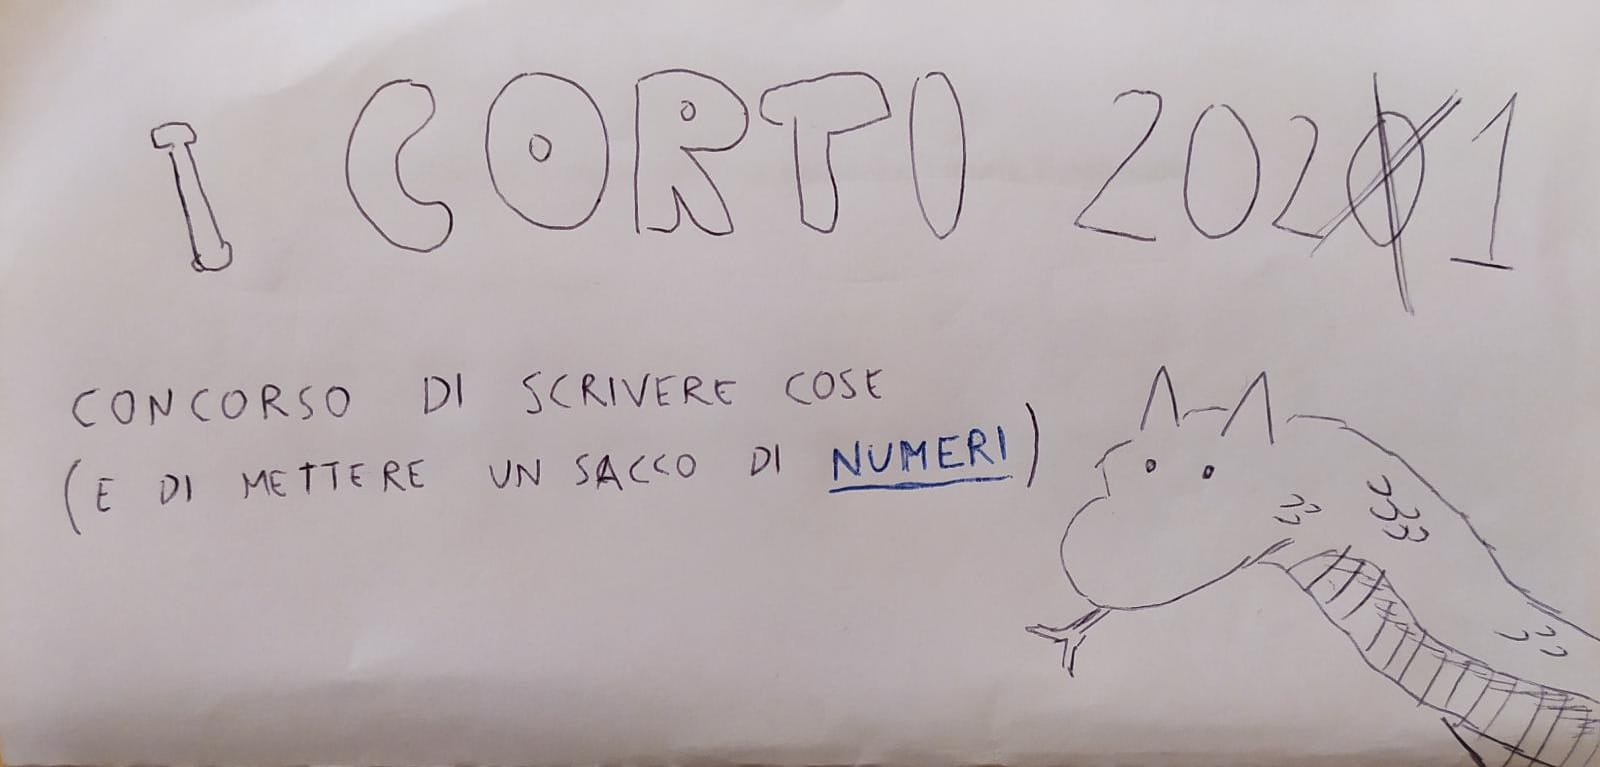 I CORTI 20201
CONCORSO DI SCRIVERE COSE
(E DI METTERE UN SACCO DI NUMERI)